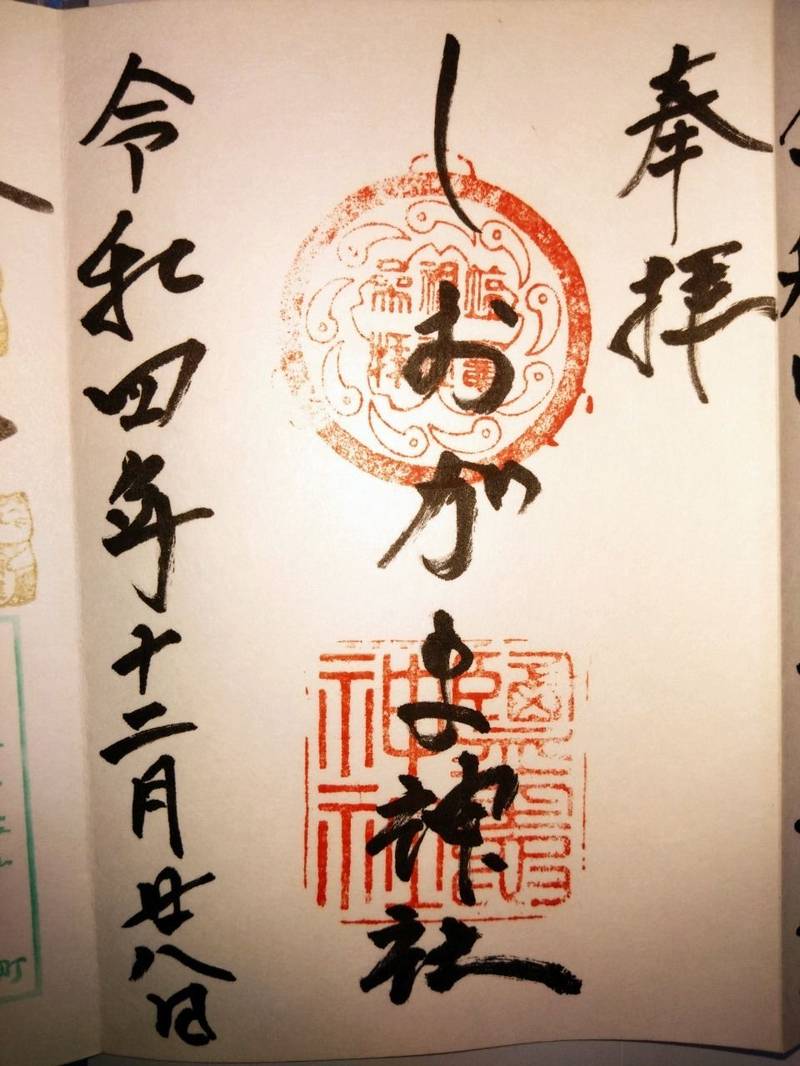 奉拝
しおがま神社
令和四年十二月廿八日
神社
町